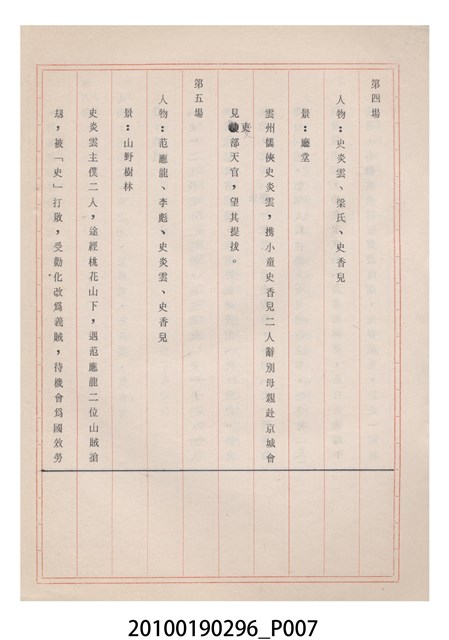 第四場
人物：史炎雲、梁氏、史香兒
景：廳堂
雲州儒俠史炎雲，携小童史香兒二人辭別母親赴京城會
見吏部天官，望其提拔。
第五場
人物：范應龍、李彪、史炎雲、史香兒
景：山野樹林
史炎雲主僕二人，途經桃花山下，遇范應龍二位山賊搶
刼，被「史」打敗，受勸化改爲義賊，待機會爲國效勞
20100190296_P007